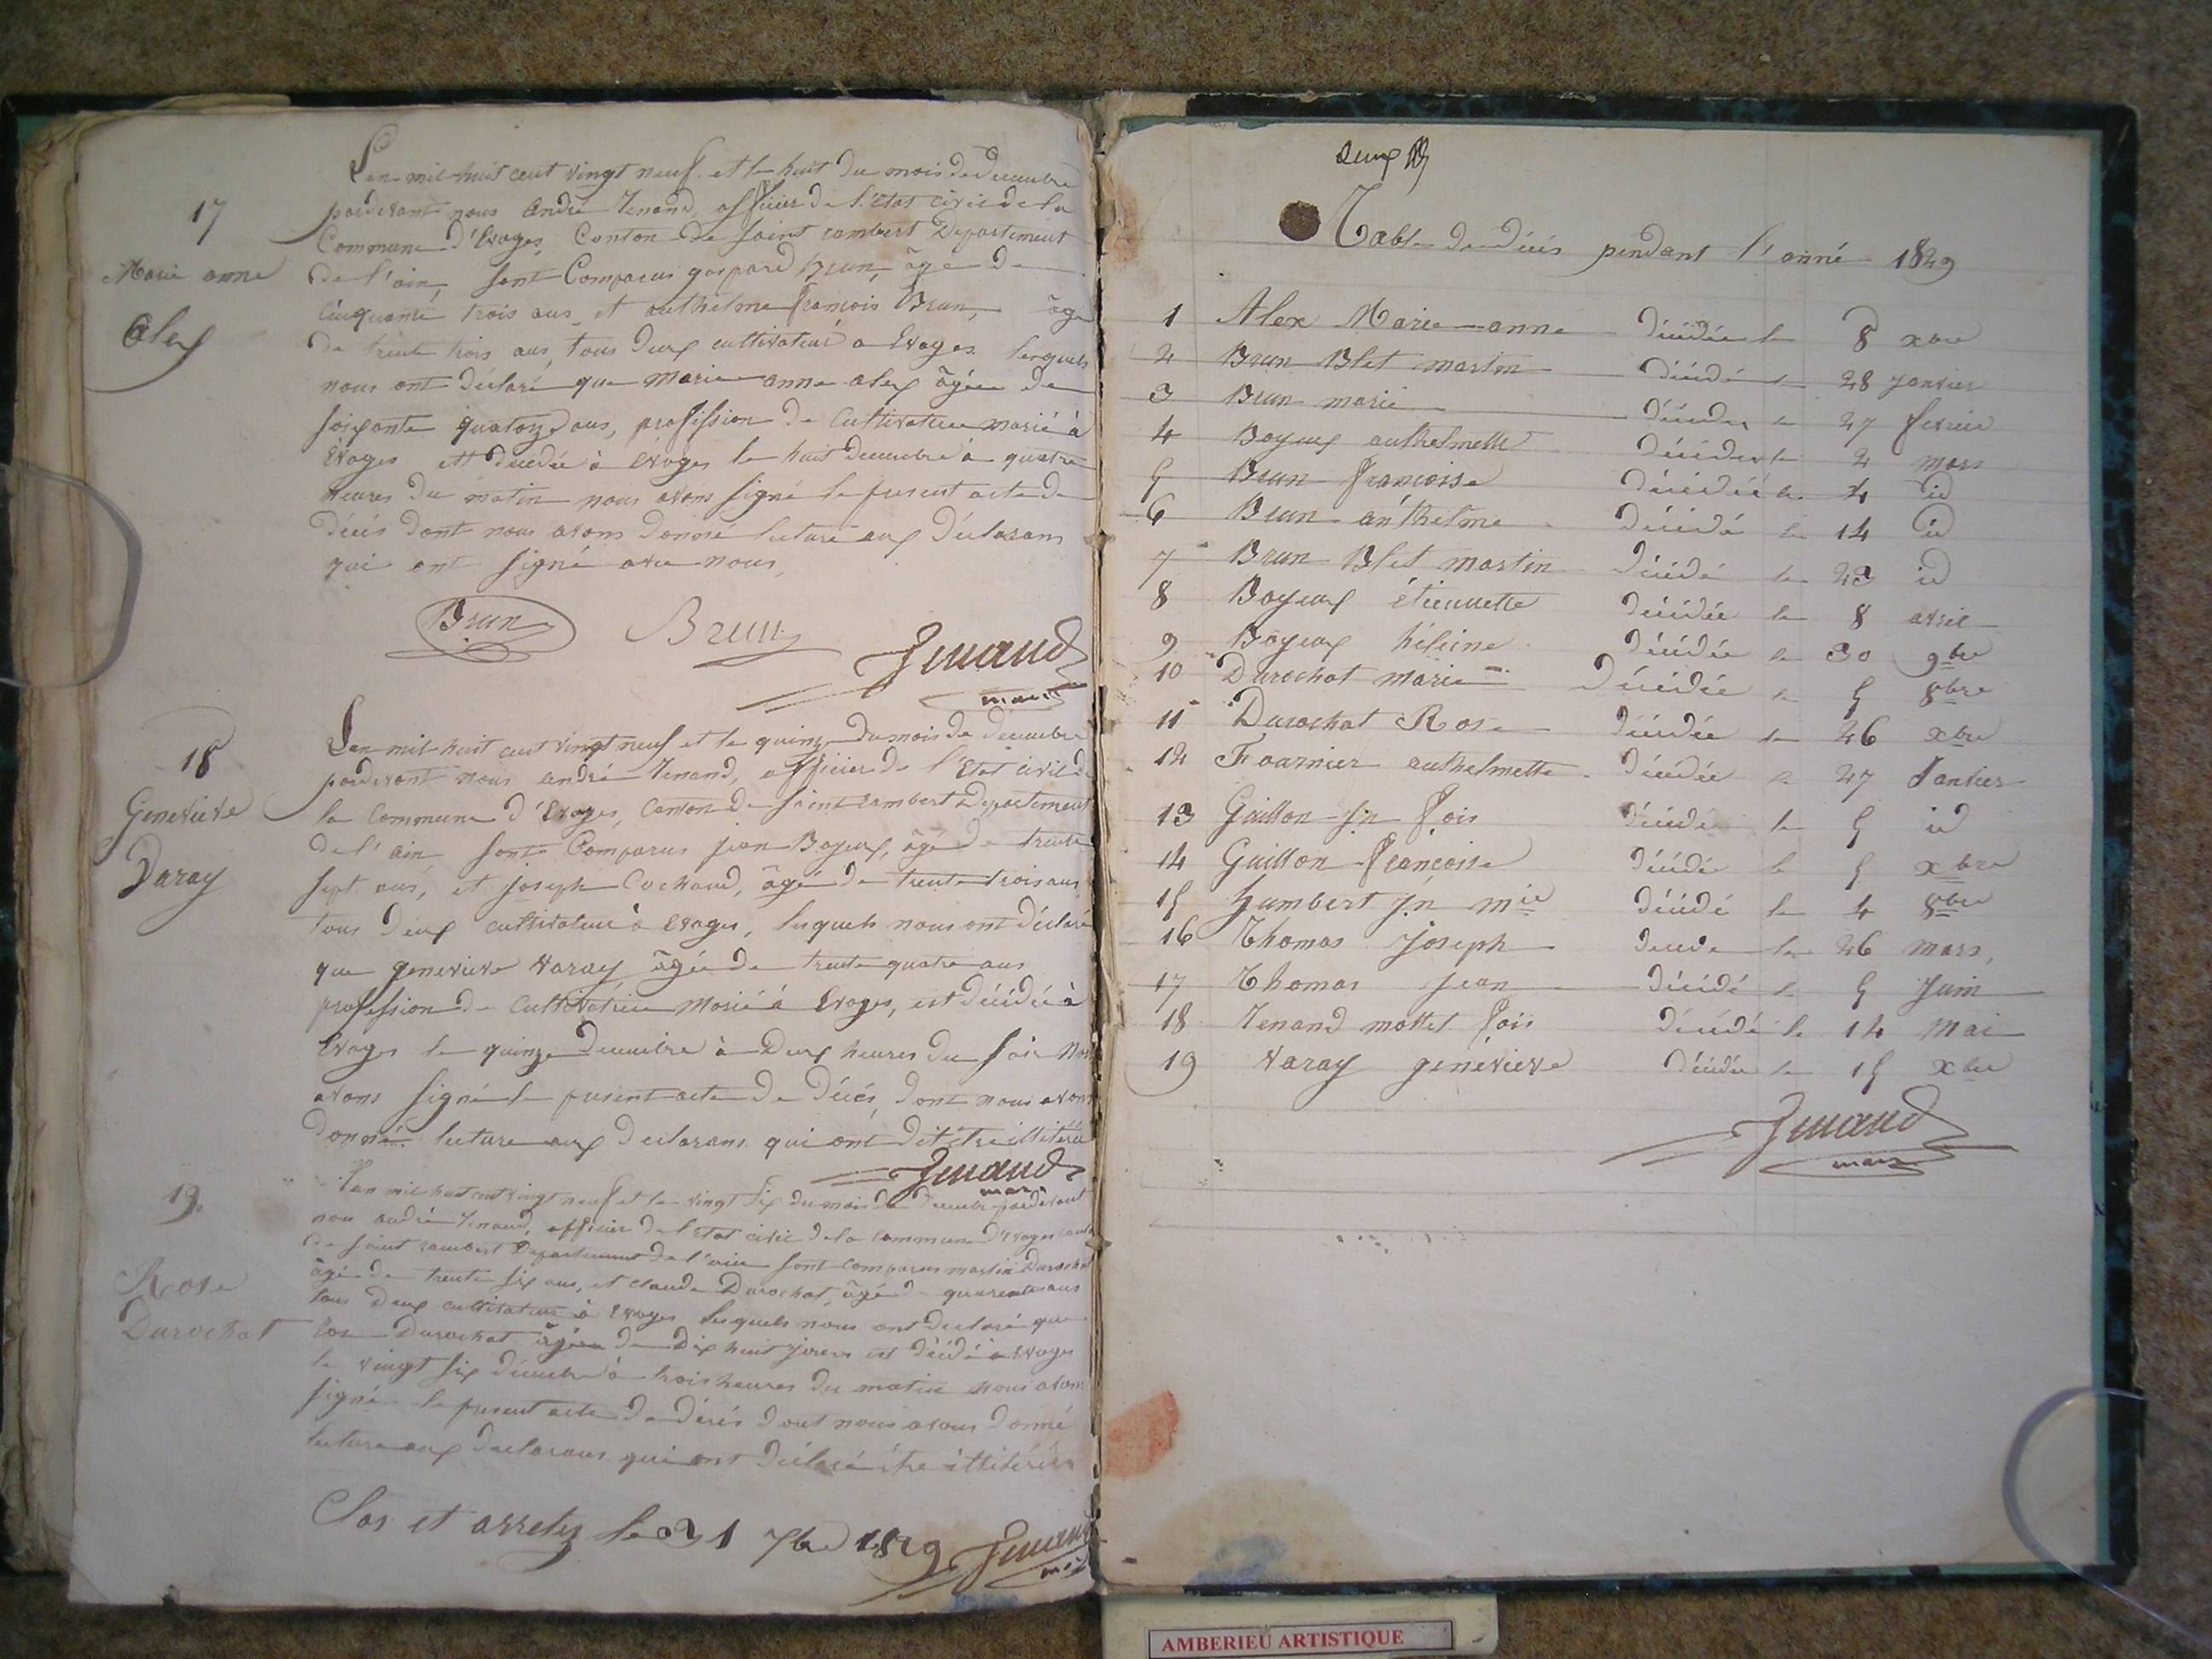 17
Marie anne
Alex
L'an mil huit cent vingt neuf et le huit du mois de decembre
pardevant nous André Tenand, officier de l'état civil de la
Commune d'Evoges, Canton de saint rambert Departement
de l'ain, sont Comparus gaspard Brun, âgé de
cinquante trois ans et anthelme françois Brun, âgé
de trente trois ans, tous deux cultivateur a Evoges lesquels
nous ont déclaré que marie anne alex âgée de
soixante quatorze ans, profission de Cultivatrice marié à
Evoges est décédée à Evoges le huit decembre à quatre
heures du matin nous avons signé le present acte de
décés dont nous avons donné lecture aux déclarans
qui ont signé avec nous,
Brun Brun Tenand
maire
18
Genevieve
Varay
L'an mil huit cent vingt neuf et le quinze du mois de decembre
pardevant nous andré Tenand, officier de l'état civil de
la Commune d'Evoges, Canton de saint rambert Departement
de l'ain sont Comparus jean Boyeux, âgé de trente
sept ans, et joseph Cochand, âgé de trente trois ans,
tous deux cultivateur à Evoges, lesquels nous ont déclaré
que genevieve varay âgée de trente quatre ans
profession de Cultivatrice Marié à Evoges, est décédée à
Evoges le quinze decembre à Deux heures du soir Nous
avons signé le present acte de décés, dont nous avons
donné lecture aux declarans qui ont dit être illiterés
Tenand
maire
19.
Rose
Durochat
l'an mil huit cent vingt neuf et le vingt six du mois de decembre pardevant
nous andré Tenand, officier de l'état civil de la commune d'Evoges canton
de saint rambert Departement de l'ain sont comparus martin Durochat
âgé de trente six ans, et claude Durochat, âgé de quarente ans
tous deux cultivateur à Evoges lesquels nous ont declaré que
Rose Durochat âgée de dix huit jours est décédé à Evoges
le vingt six décembre à trois heures du matin nous avons
signé le present acte de décés dont nous avons donné
lecture aux declarans qui ont déclaré être illitérés
Clos et arretez le 31 Xbre 1829 Tenand
maire
Table de décés pendant l'anné 1829
1 Alex Marie-anne décédée le 8 xbre
2 Brun Blet martin décédé le 28 janvier
3 Brun marie décédée le 27 fevrier
4 Boyeux anthelmette décédée le 2 mars
5 Brun françoise décédée le 4 id
6 Brun anthelme décédé le 14 id
7 Brun Blet martin décédé le 23 id
8 Boyeux étiennette décédée le 8 avril
9 Boyeux héleine décédée le 30 9bre
10 Durochat marie décédée le 5 8bre
11 Durochat Rose décédée le 26 xbre
12 Fournier anthelmette décédée le 27 Janvier
13 Guillon jn fois décédé le 5 id
14 Guillon françoise décédée le 5 xbre
15 Humbert jn mie décédé le 4 8bre
16 Thomas Joseph decede le 26 mars,
17 Thomas Jean décédé le 5 Juin
18 Tenand mottet fois décédé le 14 Mai
19 Varay genévieve décédée le 15 xbre
Tenand
maire
AMBERIEU ARTISTIQUE